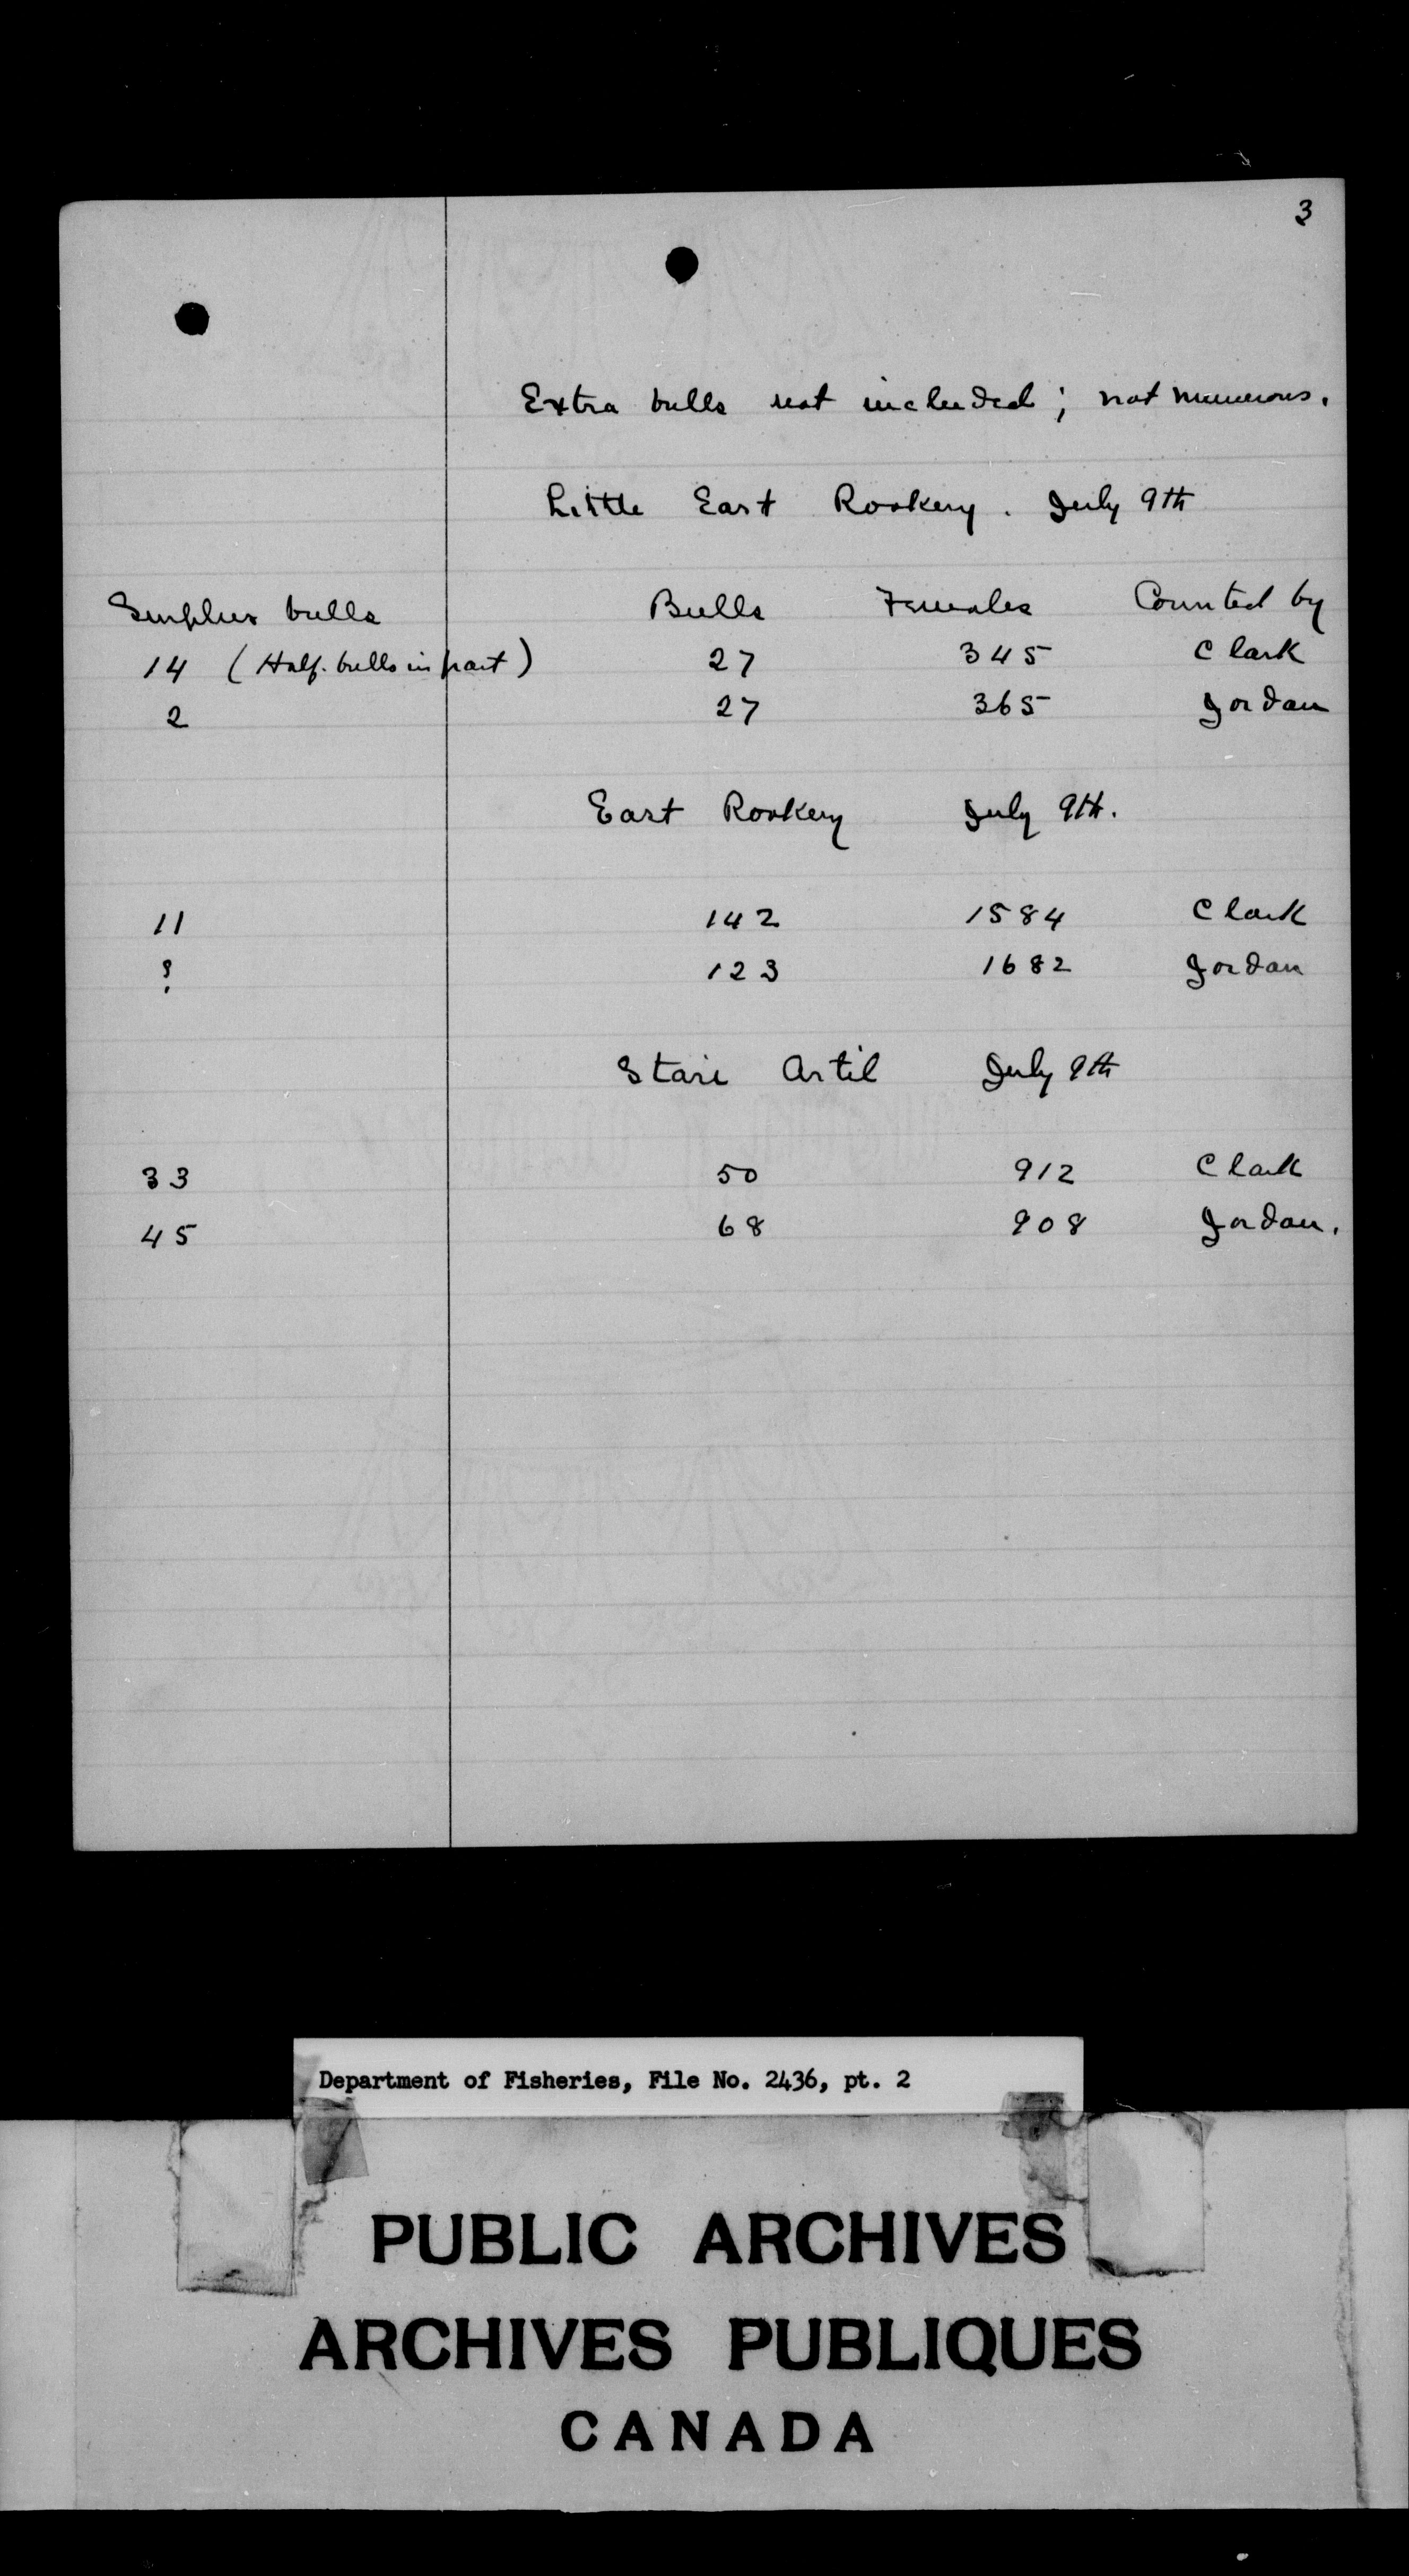 3
Extra bulls not included; not numerous.
Little East Rookery. July 9th
Surplus bulls Bulls Females Counted by
14 (Half-bulls in part) 27 345 Clark
2 27 365 Jordan
East Rookery July 9th.
11 142 1584 Clark
? 123 1682 Jordan
Stari Artil July 9th
33 50 912 Clark
45 68 908 Jordan.
Department of Fisheries, File No. 2436, pt. 2
PUBLIC ARCHIVES
ARCHIVES PUBLIQUES
CANADA